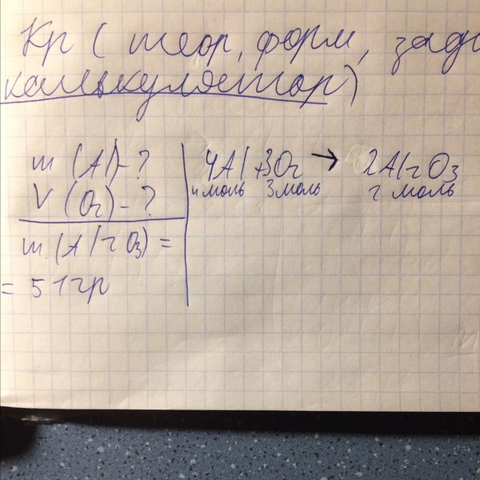 Кр (теор, форм, зада
калькулятор)
m (Al) - ?
V (O₂) - ?
m (Al₂O₃) =
= 51 гр
4Al + 3O₂ → 2Al₂O₃
4 моль 3 моль 2 моль